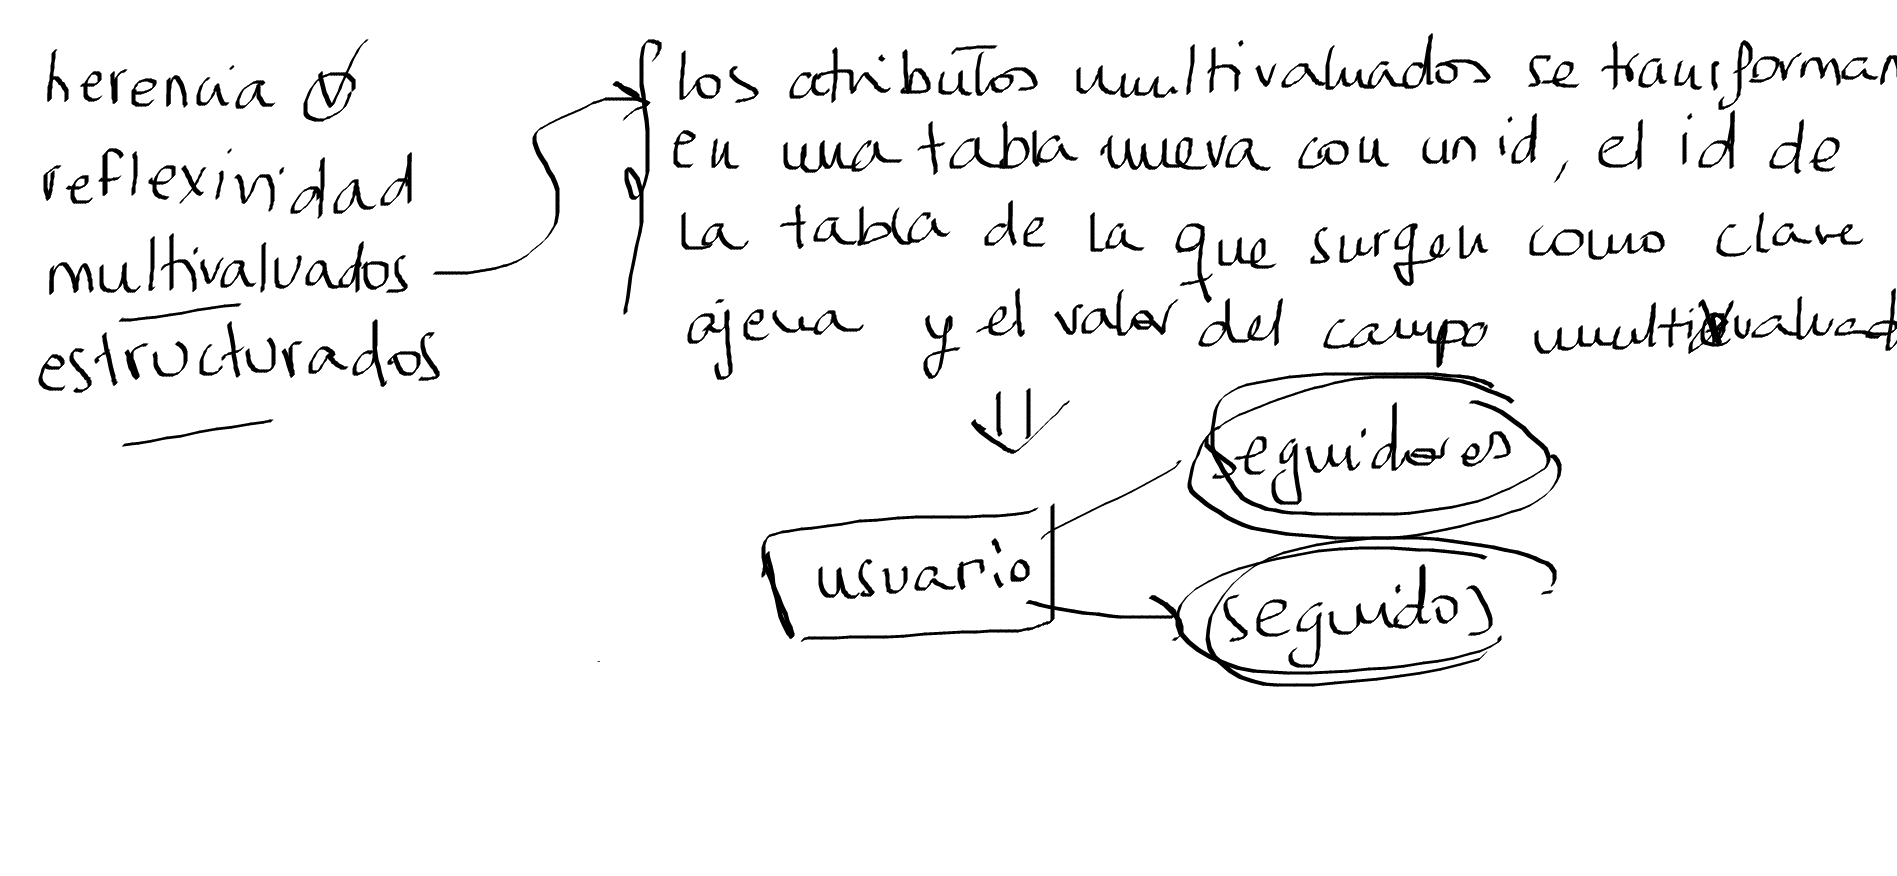 herencia
reflexividad
multivaluados
estructurados
los atributos multivaluados se transforman
en una tabla nueva con un id, el id de
la tabla de la que surgen como clave
ajena y el valor del campo multivaluad
seguidores
usuario
seguidos